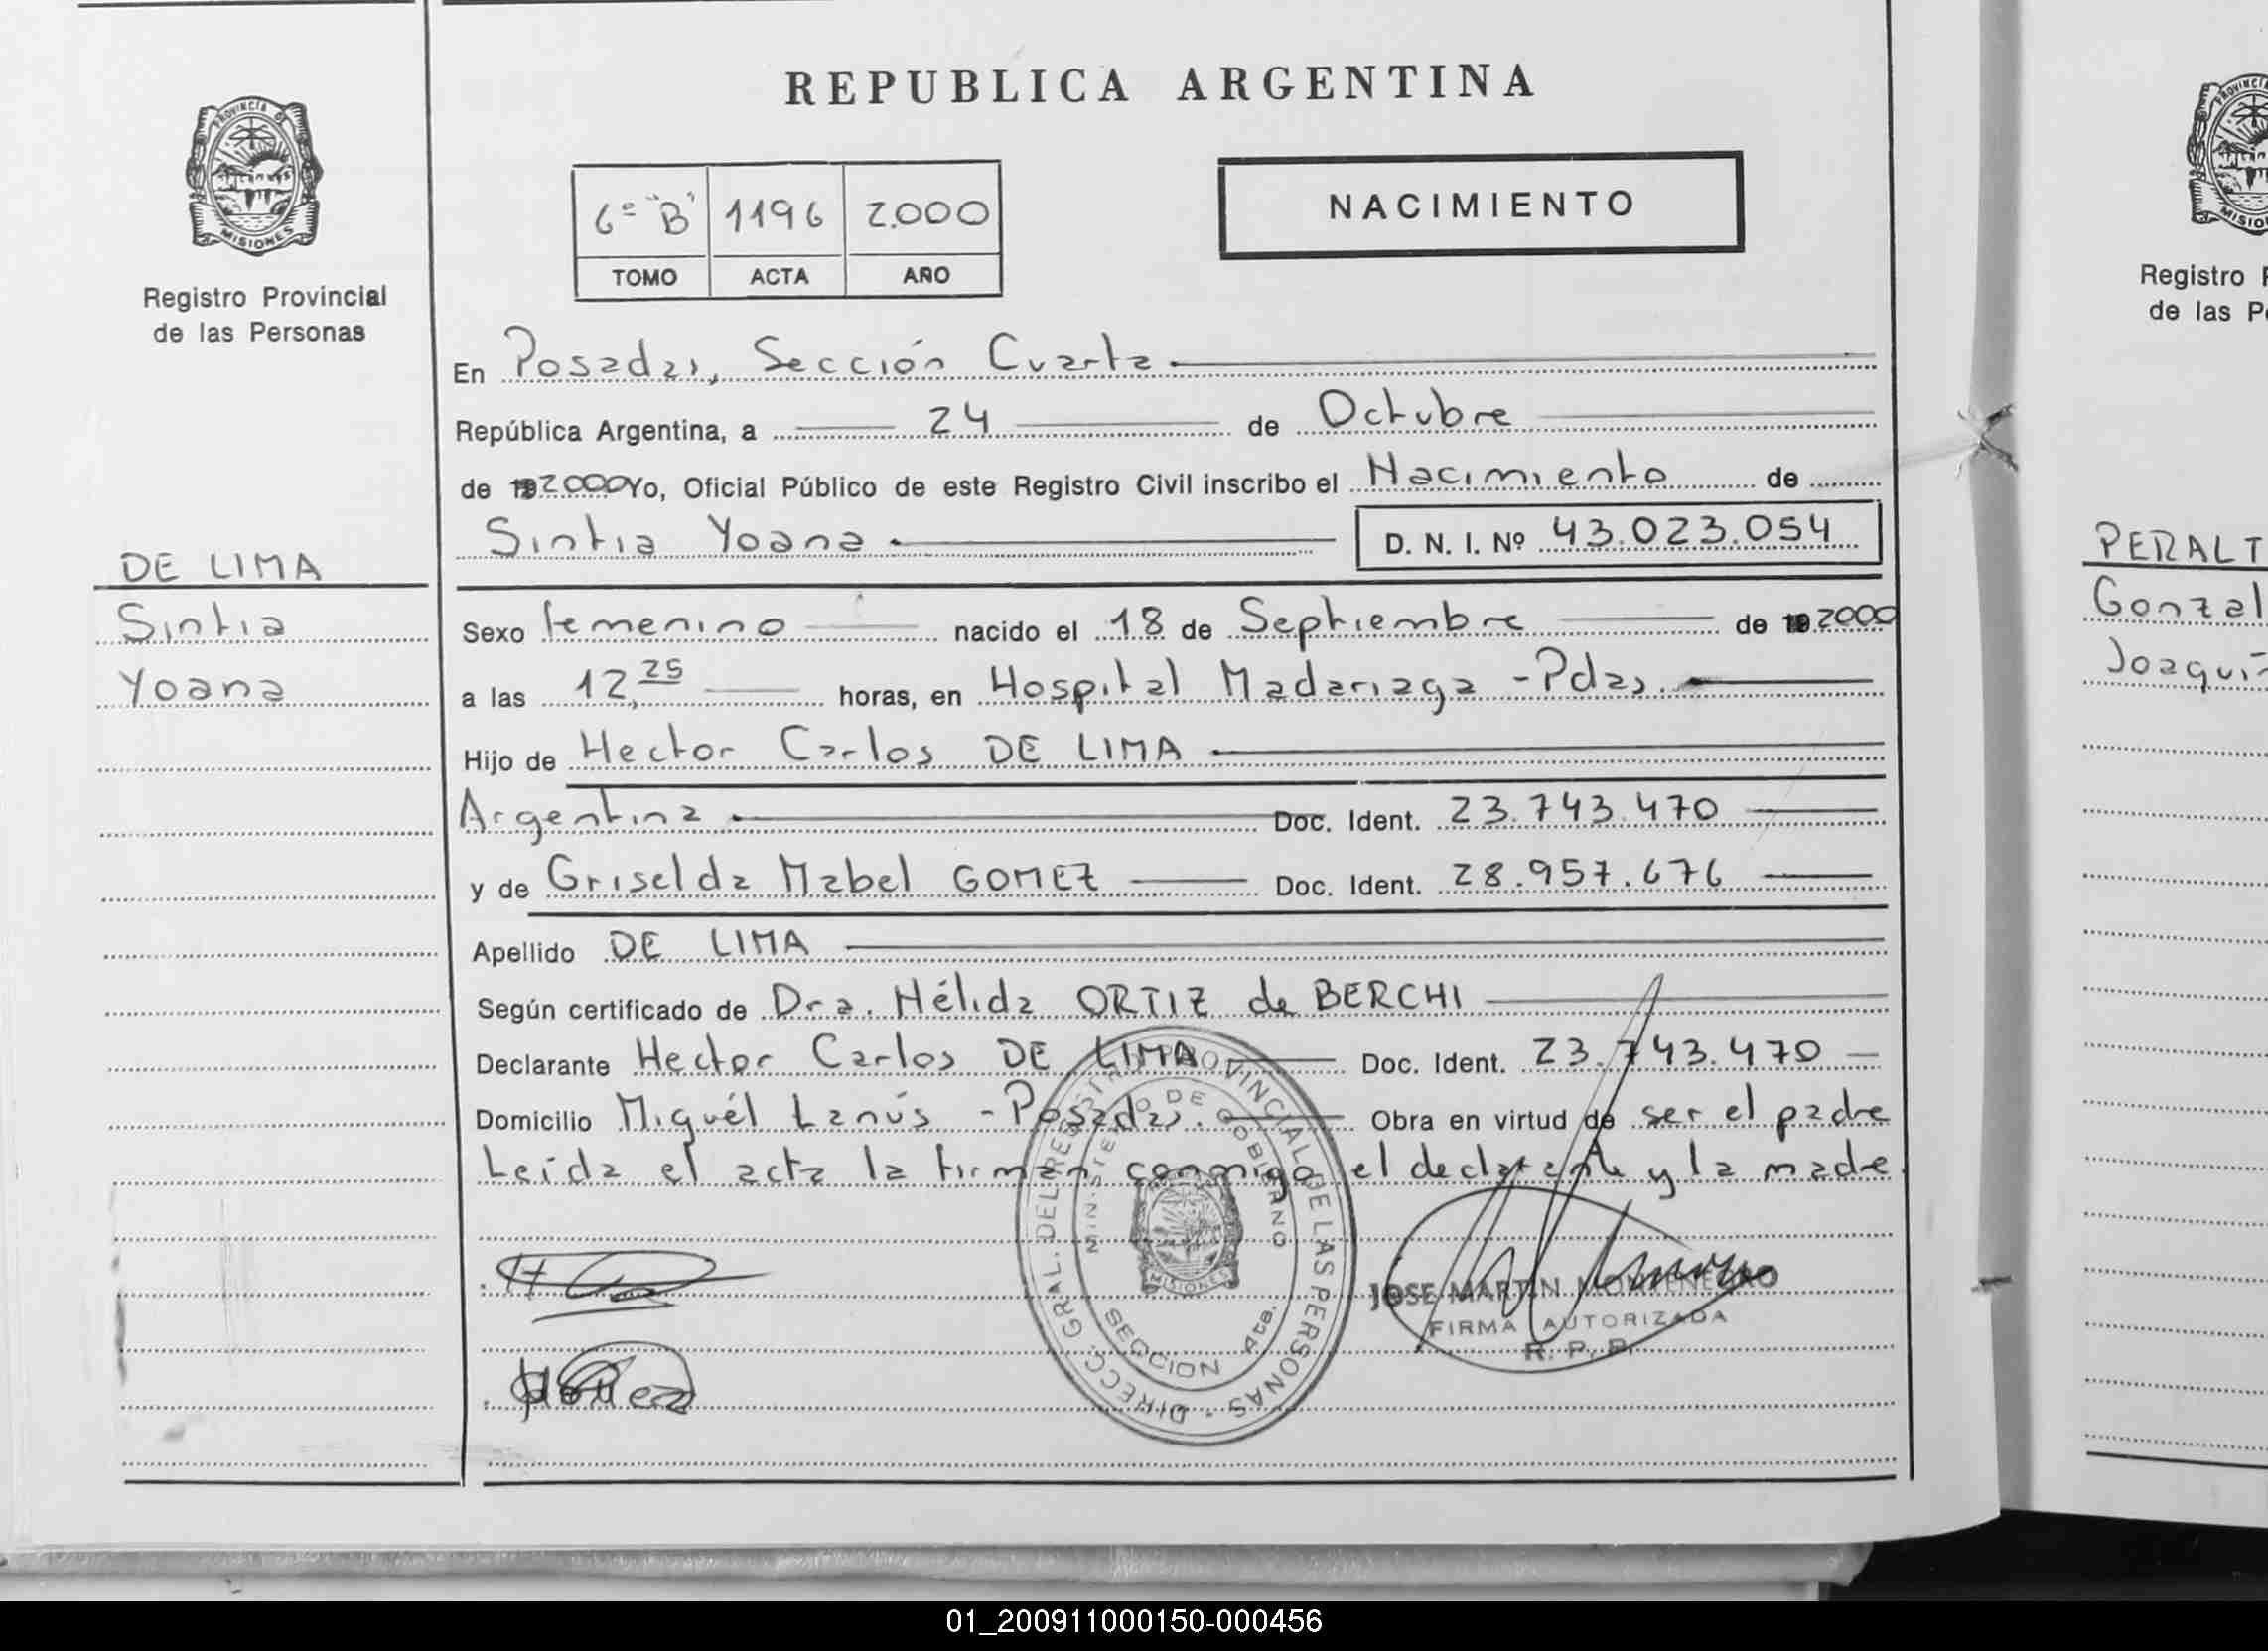 REPUBLICA ARGENTINA
PROVINCIA DE
MISIONES
Registro Provincial
de las Personas
6º "B" 1196 2.000
TOMO ACTA AÑO
NACIMIENTO
En Posadas, Sección Cuarta
República Argentina, a 24 de Octubre
de 192000 Yo, Oficial Público de este Registro Civil inscribo el Nacimiento de
Sintia Yoana
D. N. I. Nº 43.023.054
DE LIMA
Sintia
Yoana
Sexo femenino nacido el 18 de Septiembre de 192000
a las 12,25 horas, en Hospital Madariaga - Pdas.
Hijo de Hector Carlos DE LIMA
Argentina Doc. Ident. 23.743.470
y de Griselda Mabel GOMEZ Doc. Ident. 28.957.676
Apellido DE LIMA
Según certificado de Dra. Hélida ORTIZ de BERCHI
Declarante Hector Carlos DE LIMA Doc. Ident. 23.743.470
Domicilio Miguél Lanús - Posadas. Obra en virtud de ser el padre
Leída el acta la firman conmigo el declarante y la madre.
DIRECC. GRAL. DEL REGISTRO PROVINCIAL DE LAS PERSONAS
MINISTERIO DE GOBIERNO
MISIONES
SECCION 4ta.
JOSE MARTIN
FIRMA AUTORIZADA
R. P. P.
PROVINCIA
MISIO
Registro P
de las Pe
PERALT
Gonzal
Joaquí
01_200911000150-000456